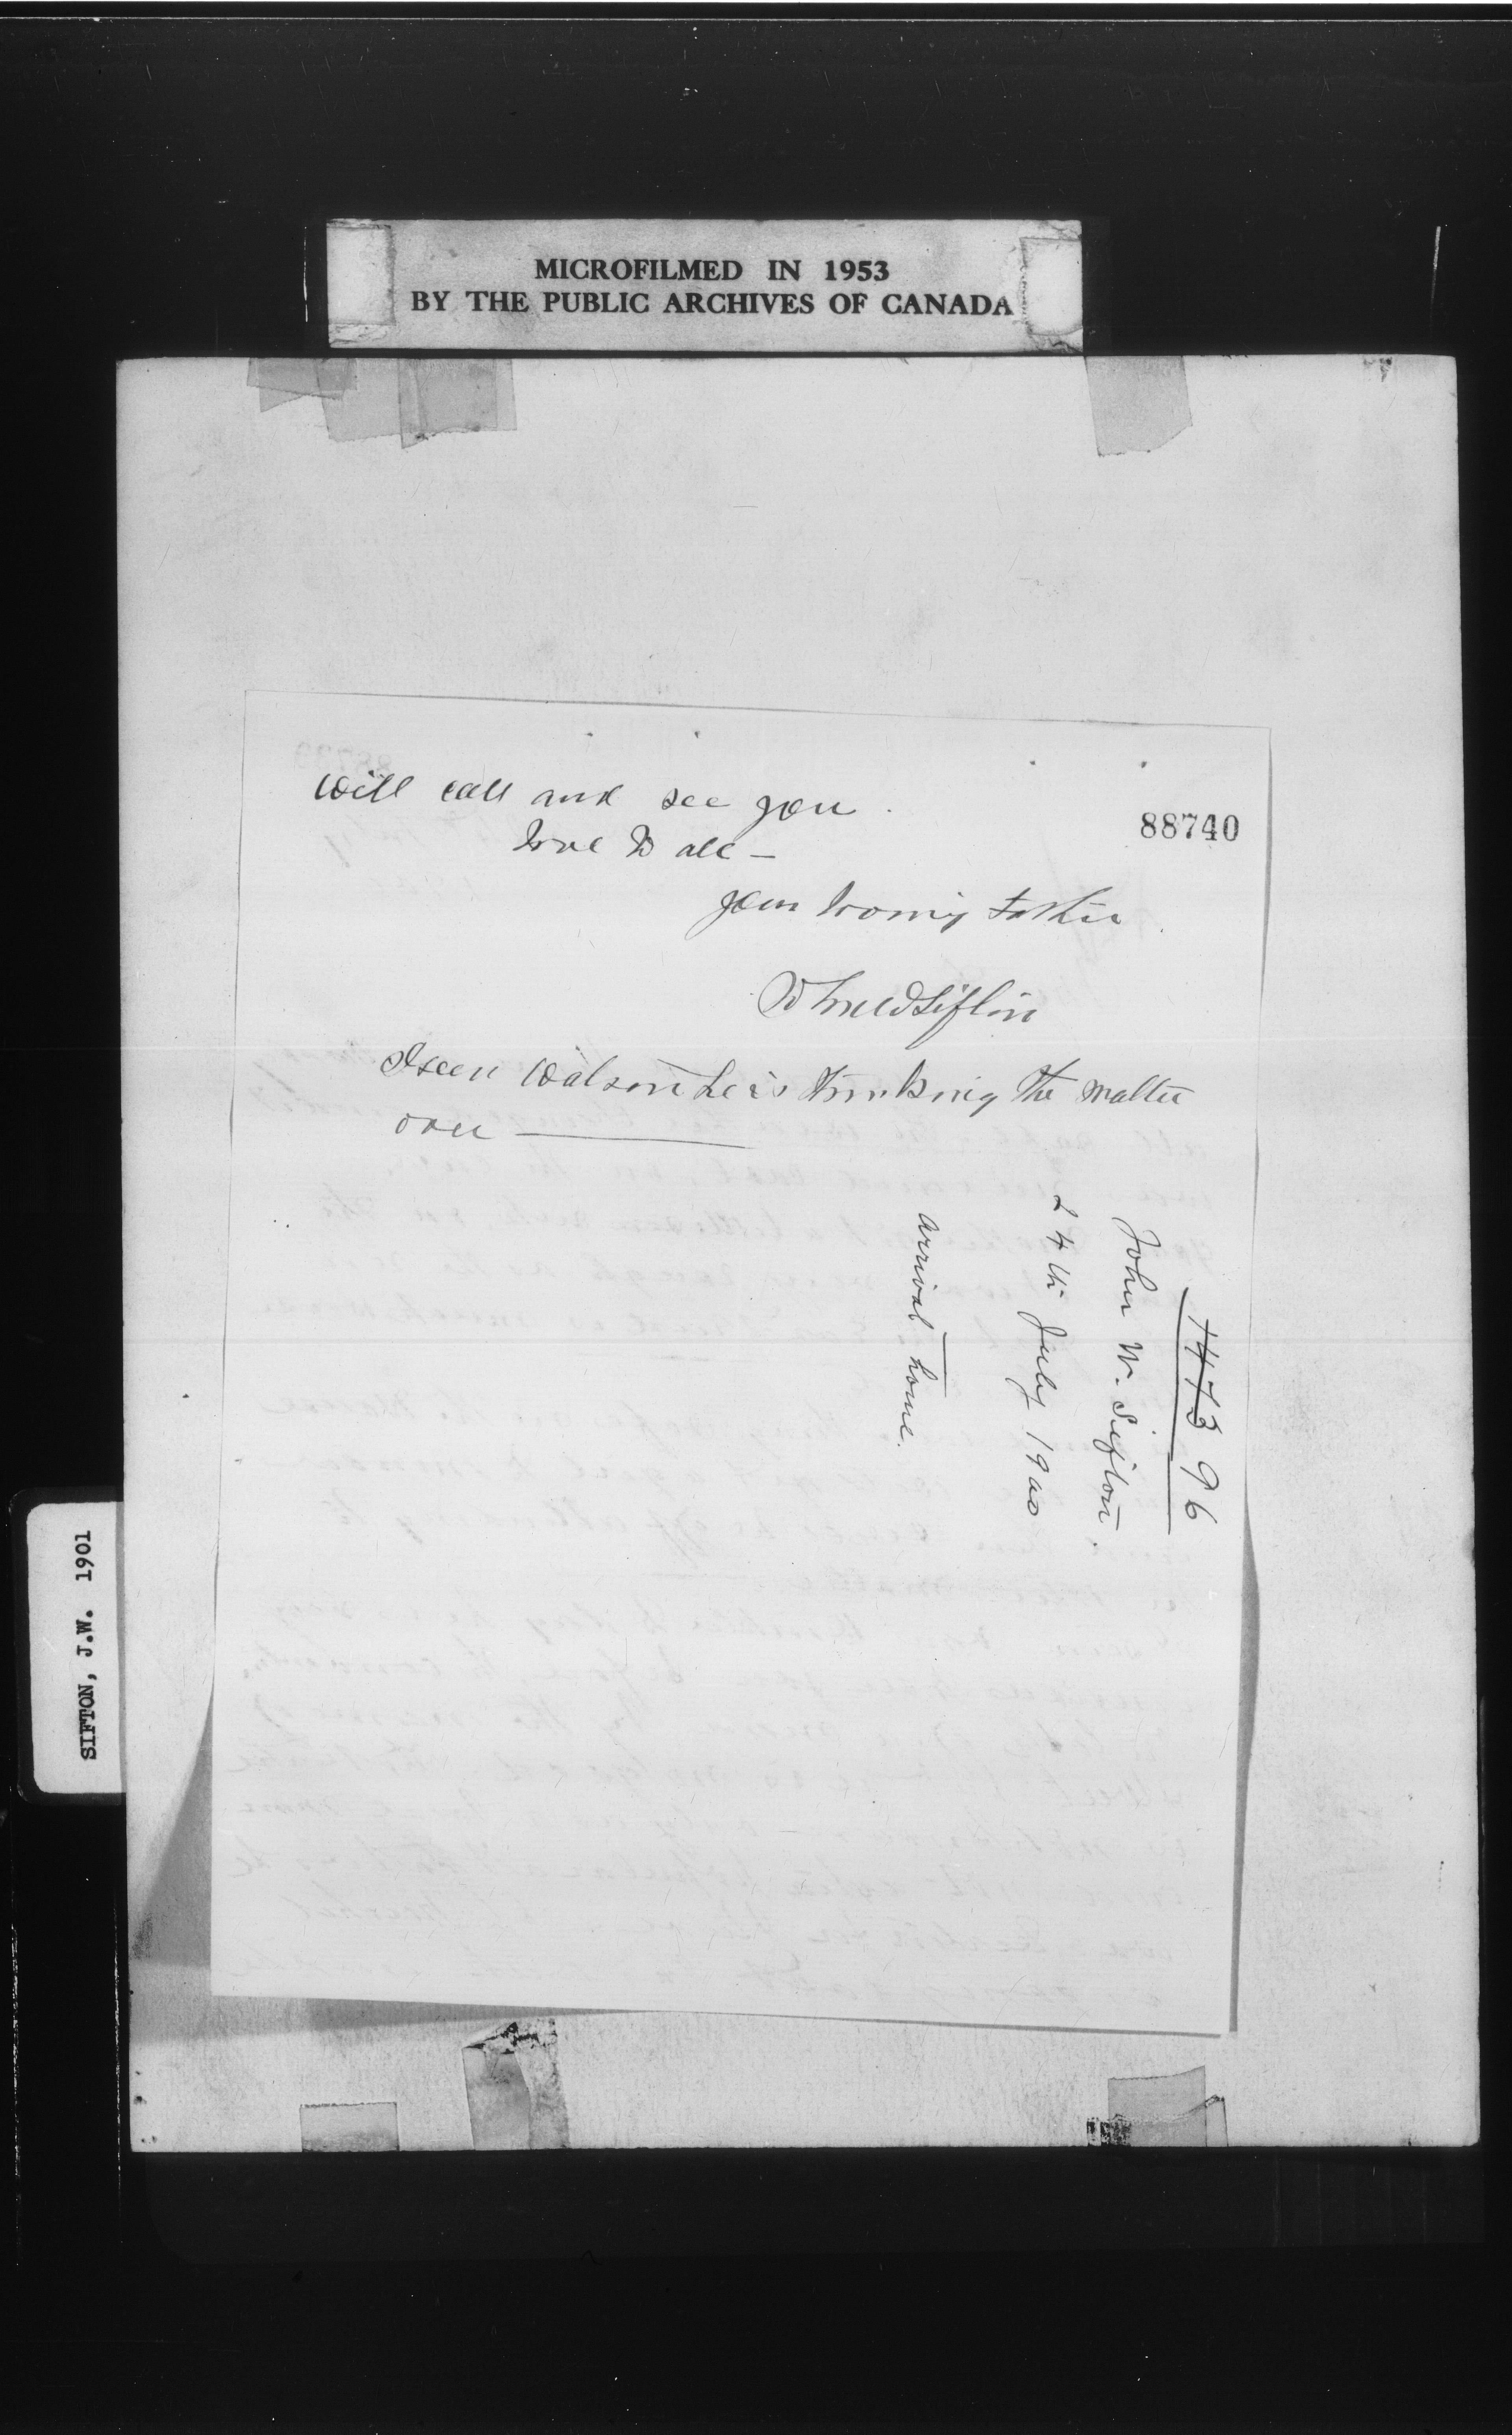 MICROFILMED IN 1953
BY THE PUBLIC ARCHIVES OF CANADA
88740
will call and see you.
love to all —
your loving Father
John W Sifton
I seen Watson he is thinking the matter
over
1473 96
John W. Sifton.
24th July 1900
arrival home.
SIFTON, J.W. 1901